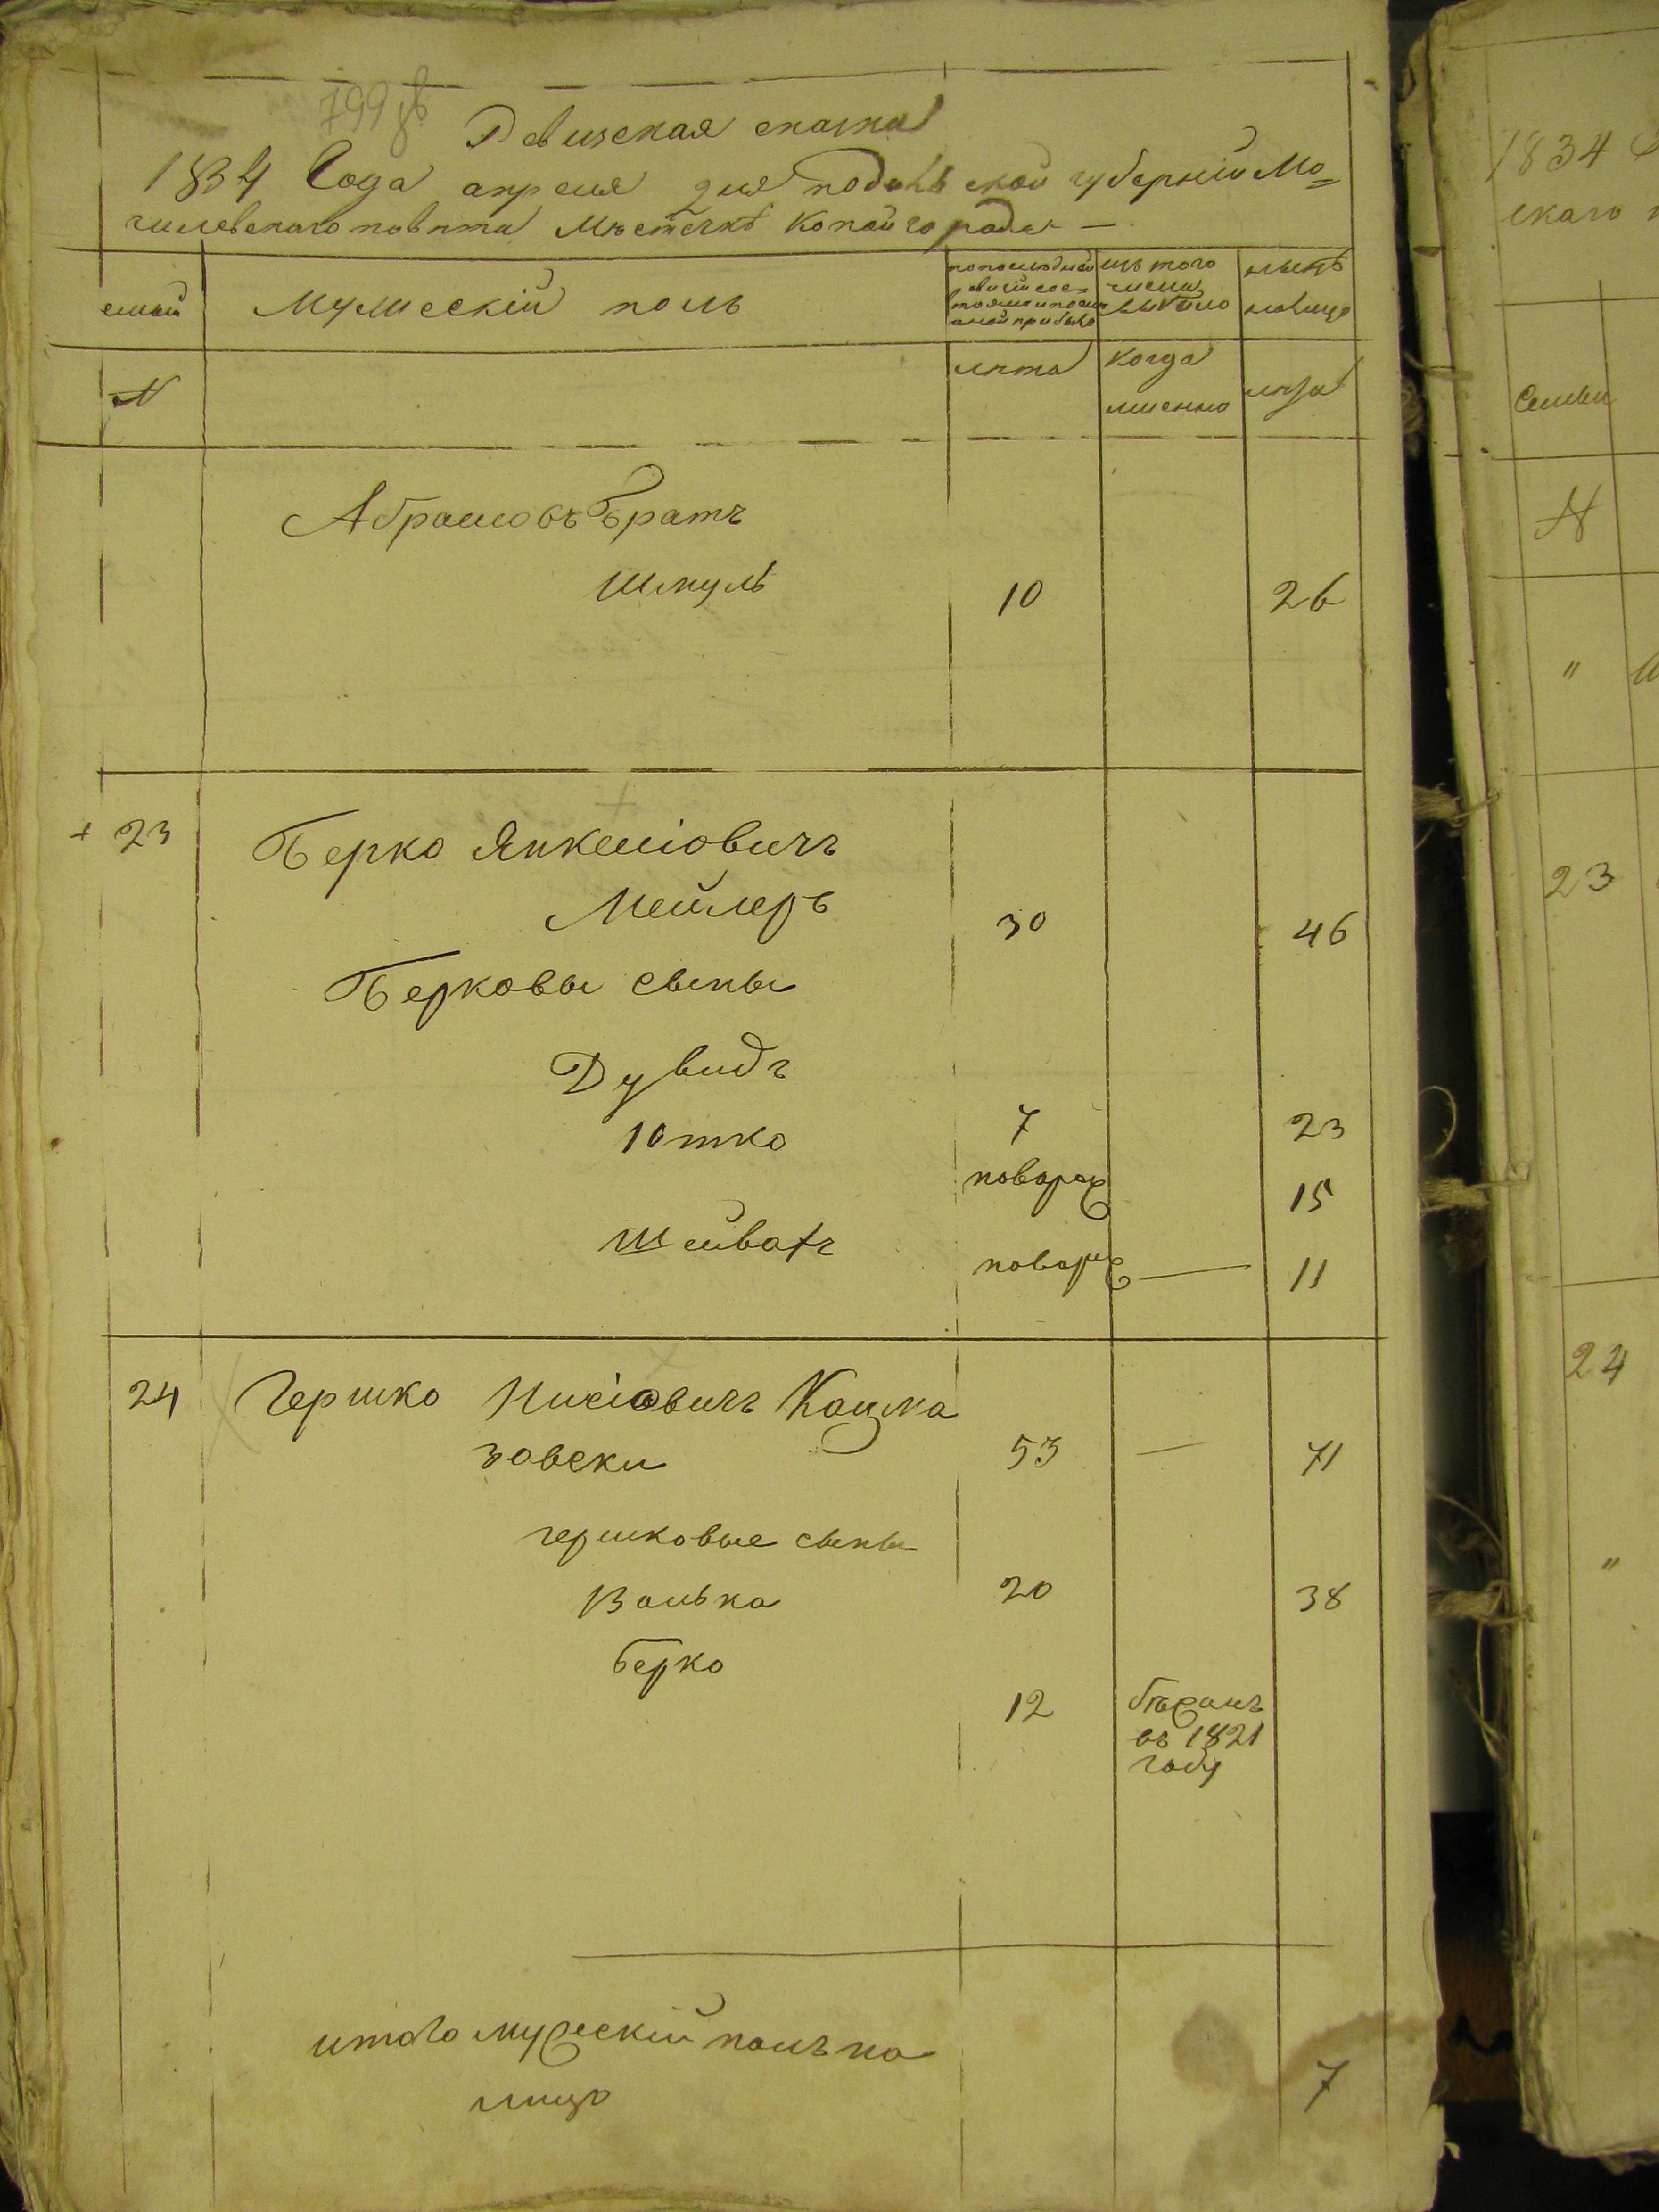 799 об
Ревизская сказка
1834 Года апреля дня подольской губернии Мо=
гилевскаго повѣта Мѣстечка Копайгорода —
семьи
Мужескій полъ
по последней
ревизіи сос-
изъ того
числа
выбыло
нынѣ
на лицо
N
лета
когда
именно
лѣта
Абрамовъ Братъ
Шмуль
10
26
+ 23
Берко Янкеліовичъ
Мейлеръ
30
46
Берковы сыны
Дувидъ
7
23
Ютко
15
Шейвахъ
—
11
24
Гершко Нисіовичъ
зовски
53
—
71
гершковые сыны
Волько
20
38
Берко
12
бѣжалъ
въ 1821
году
итого мужескій полъ на
лицо
7
1834
скаго
Семьи
N
"
23
24
"